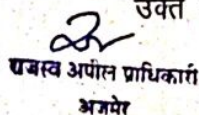 उक्त
राजस्व अपील प्राधिकारी
अजमेर